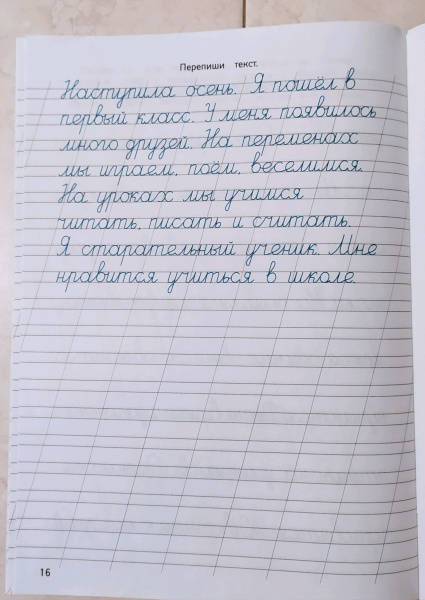 Перепиши текст.
Наступила осень. Я пошёл в
первый класс. У меня появилось
много друзей. На переменах
мы играем, поём, веселимся.
На уроках мы учимся
читать, писать и считать.
Я старательный ученик. Мне
нравится учиться в школе.
16